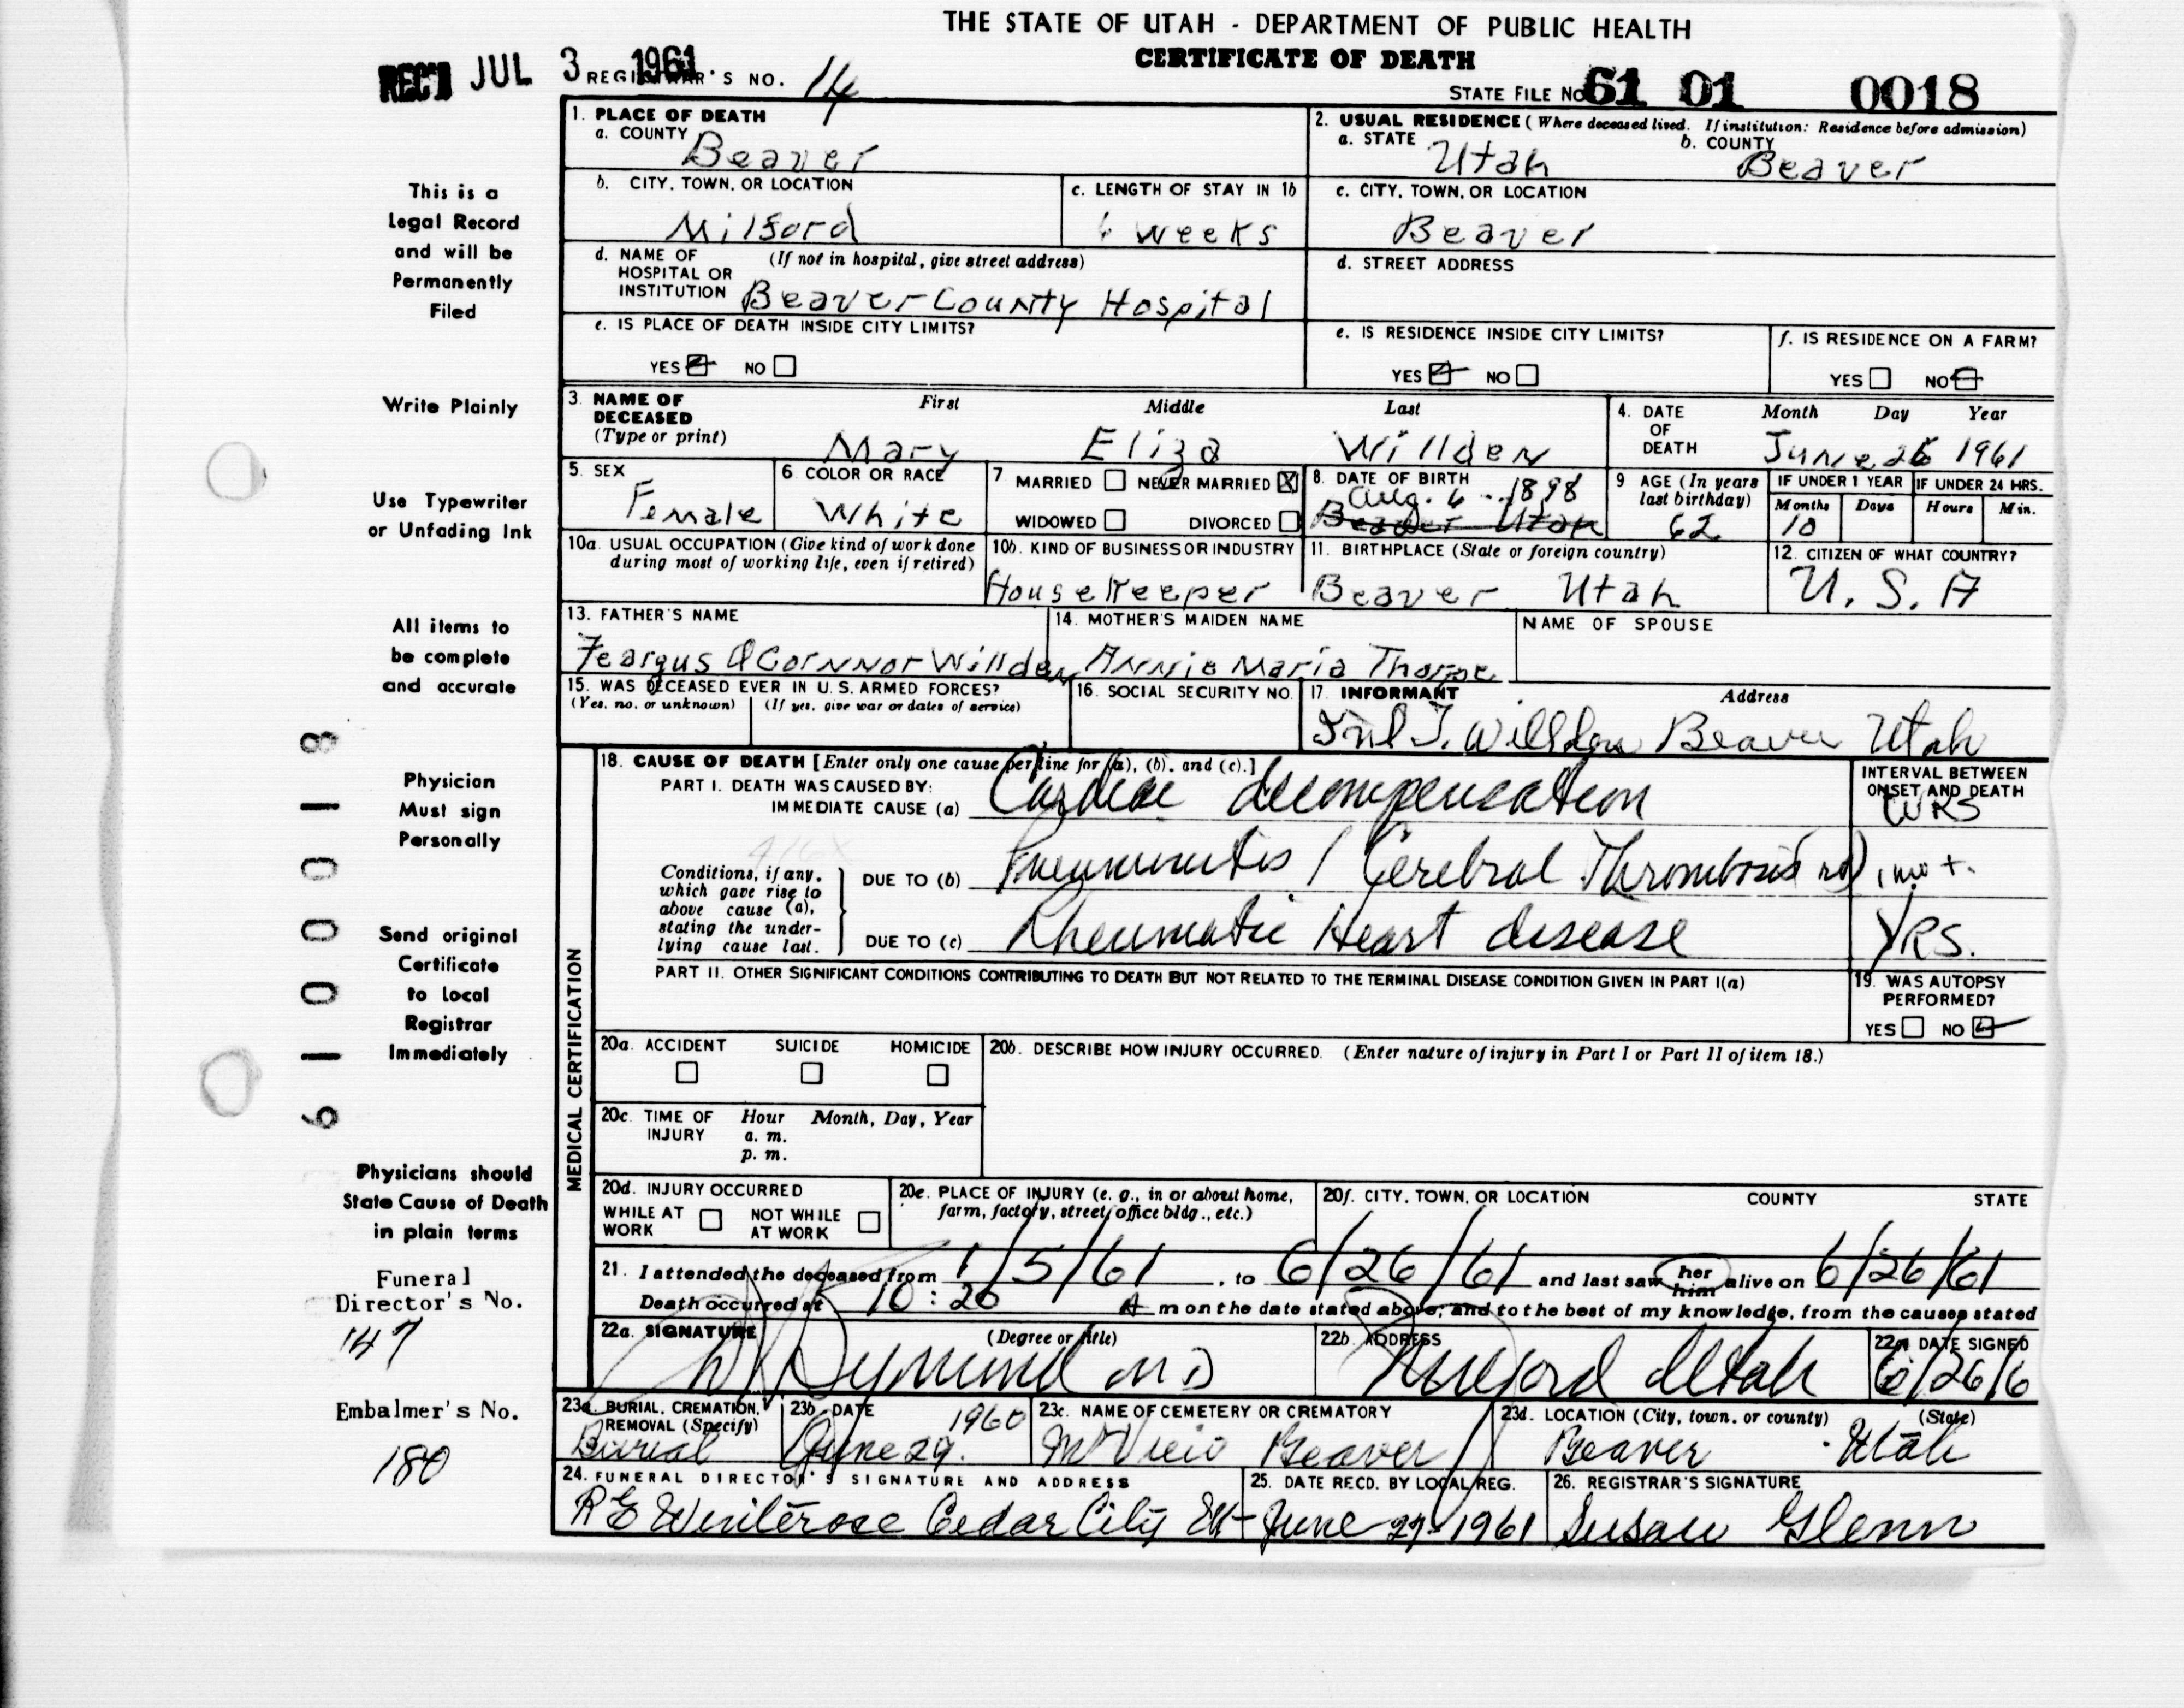 THE STATE OF UTAH - DEPARTMENT OF PUBLIC HEALTH
CERTIFICATE OF DEATH
REC'D JUL 3 1961
REGISTRAR'S NO. 14
STATE FILE NO. 61 01 0018
1. PLACE OF DEATH
a. COUNTY Beaver
2. USUAL RESIDENCE (Where deceased lived. If institution: Residence before admission)
a. STATE Utah b. COUNTY Beaver
b. CITY, TOWN, OR LOCATION Milford
c. LENGTH OF STAY IN 1b 6 weeks
c. CITY, TOWN, OR LOCATION Beaver
d. NAME OF HOSPITAL OR INSTITUTION (If not in hospital, give street address) Beaver County Hospital
d. STREET ADDRESS
e. IS PLACE OF DEATH INSIDE CITY LIMITS?
YES NO
e. IS RESIDENCE INSIDE CITY LIMITS?
YES NO
f. IS RESIDENCE ON A FARM?
YES NO
3. NAME OF DECEASED (Type or print)
First Middle Last
Mary Eliza Willden
4. DATE OF DEATH Month Day Year
June 26 1961
5. SEX Female
6 COLOR OR RACE White
7 MARRIED NEVER MARRIED X
WIDOWED DIVORCED
8. DATE OF BIRTH
Aug. 6 - 1898
Beaver Utah
9 AGE (In years last birthday) 62
IF UNDER 1 YEAR IF UNDER 24 HRS.
Months Days Hours Min.
10
10a. USUAL OCCUPATION (Give kind of work done during most of working life, even if retired)
10b. KIND OF BUSINESS OR INDUSTRY
HouseKeeper
11. BIRTHPLACE (State or foreign country)
Beaver Utah
12. CITIZEN OF WHAT COUNTRY?
U. S. A
13. FATHER'S NAME
Feargus O'Cornnor Willden
14. MOTHER'S MAIDEN NAME
Annie Maria Thorpe
NAME OF SPOUSE
15. WAS DECEASED EVER IN U. S. ARMED FORCES?
(Yes, no, or unknown) (If yes, give war or dates of service)
16. SOCIAL SECURITY NO.
17. INFORMANT Address
T. Willden Beaver Utah
MEDICAL CERTIFICATION
18. CAUSE OF DEATH [Enter only one cause per line for (a), (b), and (c).]
PART I. DEATH WAS CAUSED BY:
IMMEDIATE CAUSE (a) Cardiac decompensation
INTERVAL BETWEEN ONSET AND DEATH
WKS
Conditions, if any, which gave rise to above cause (a), stating the underlying cause last.
DUE TO (b) Pneumonitis / Cerebral Thrombosis 1 mo +.
DUE TO (c) Rheumatic Heart disease YRS.
PART II. OTHER SIGNIFICANT CONDITIONS CONTRIBUTING TO DEATH BUT NOT RELATED TO THE TERMINAL DISEASE CONDITION GIVEN IN PART I(a)
19. WAS AUTOPSY PERFORMED?
YES NO
20a. ACCIDENT SUICIDE HOMICIDE
20b. DESCRIBE HOW INJURY OCCURRED. (Enter nature of injury in Part I or Part II of item 18.)
20c. TIME OF INJURY Hour Month, Day, Year
a. m.
p. m.
20d. INJURY OCCURRED
WHILE AT WORK NOT WHILE AT WORK
20e. PLACE OF INJURY (e. g., in or about home, farm, factory, street, office bldg., etc.)
20f. CITY, TOWN, OR LOCATION COUNTY STATE
21. I attended the deceased from 1/5/61, to 6/26/61 and last saw her him alive on 6/26/61
Death occurred at 10:20 A m on the date stated above; and to the best of my knowledge, from the causes stated
22a. SIGNATURE (Degree or title)
Symond MD
22b. ADDRESS
Milford Utah
22c. DATE SIGNED
6/26/6
23a. BURIAL, CREMATION, REMOVAL (Specify)
Burial
23b. DATE
June 29. 1960
23c. NAME OF CEMETERY OR CREMATORY
Mt View Beaver
23d. LOCATION (City, town, or county) (State)
Beaver Utah
24. FUNERAL DIRECTOR'S SIGNATURE AND ADDRESS
Cedar City
25. DATE RECD. BY LOCAL REG.
June 27 - 1961
26. REGISTRAR'S SIGNATURE
Susan Glenn
This is a
Legal Record
and will be
Permanently
Filed
Write Plainly
Use Typewriter
or Unfading Ink
All items to
be complete
and accurate
Physician
Must sign
Personally
Send original
Certificate
to Local
Registrar
Immediately
Physicians should
State Cause of Death
in plain terms
Funeral
Director's No.
147
Embalmer's No.
180
61010018